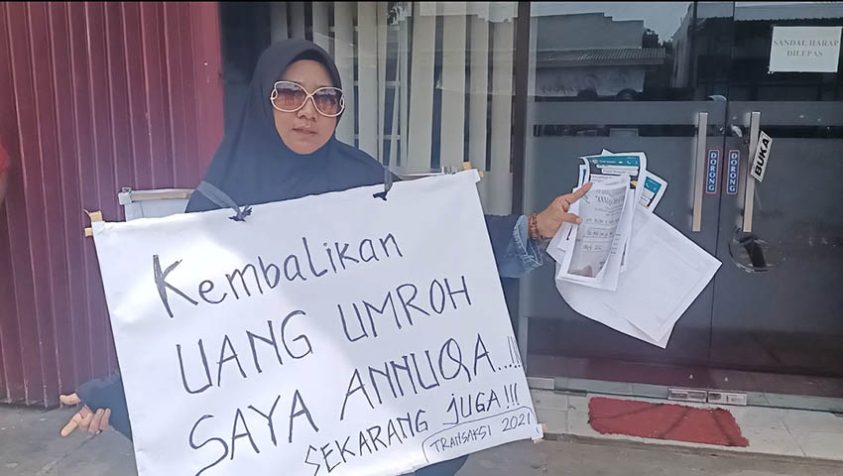 SANDAL HARAP
DILEPAS
DORONG
DORONG
BUKA
Kembalikan
UANG UMROH
SAYA ANNUQA....!!
SEKARANG JUGA!!!
TRANSAKSI 2021